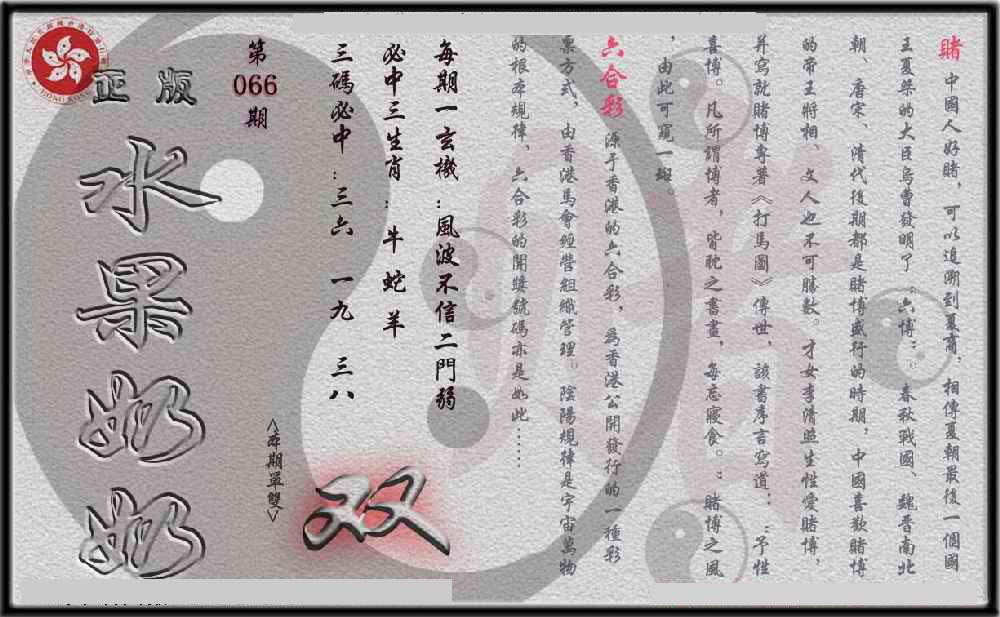 賭 中國人好賭，可以追溯到夏商，相傳夏朝最後一個國
王夏桀的大臣烏曹發明了“六博”，春秋戰國、魏晉南北
朝、唐宋、清代後期都是賭博盛行的時期，中國喜歡賭博
的帝王將相、文人也不可勝數。才女李清照生性愛賭博，
并寫就賭博專著《打馬圖》傳世，該書序言寫道：“予性
喜博。凡所謂博者，皆耽之晝晝，每忘寢食。”賭博之風
，由此可窺一斑。
六合彩 源于香港的六合彩，為香港公開發行的一種彩
票方式，由香港馬會經營組織管理。陰陽規律是宇宙萬物
的根本規律，六合彩的開獎號碼亦是如此……
每期一玄機：風波不信二門弱
必中三生肖：牛 蛇 羊
三碼必中：三六 一九 三八
第066期
<本期單雙>
双
正版
水果奶奶